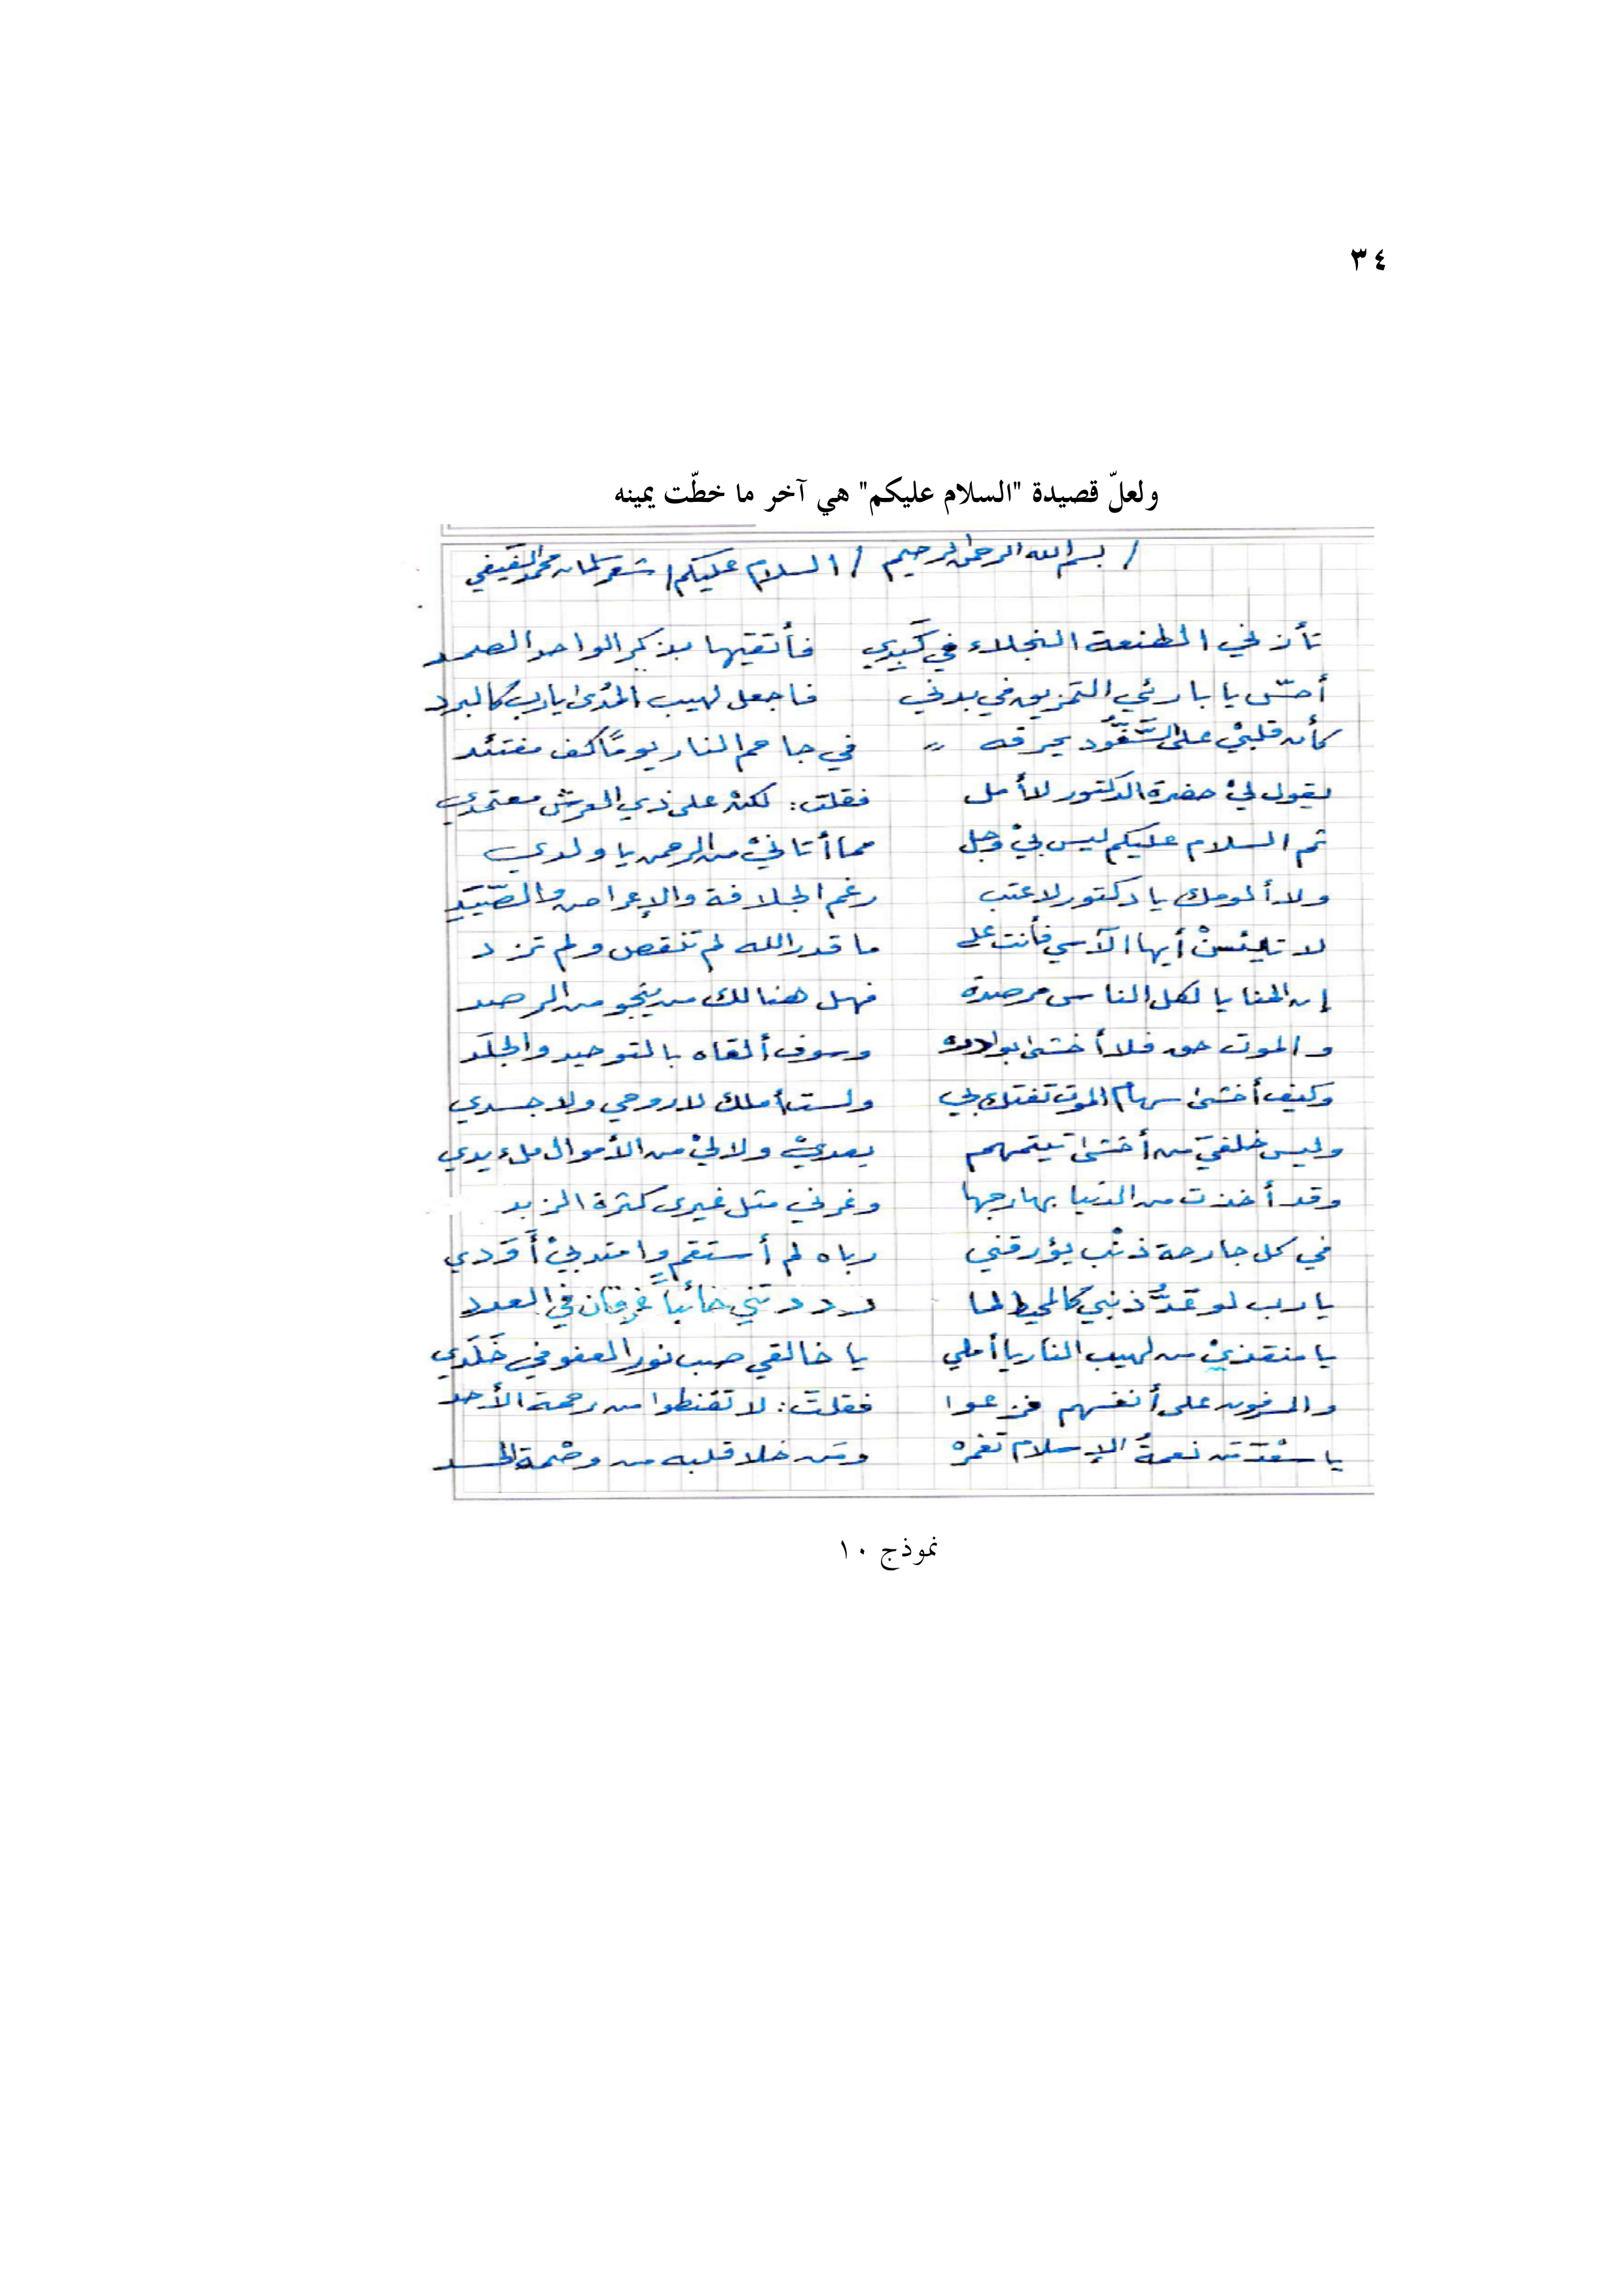 ٣٤
ولعلّ قصيدة "السلام عليكم" هي آخر ما خطّت يمينه
/ بسم الله الرحمن الرحيم / السلام عليكم / شعر سلمان محمد الفيفي
تأذني الطعنة النجلاء في كَبِدي فأتقيها بذكر الواحد الصمد
أحسّ يا بارئي التمزيق في بدني فاجعل لهيب المُدى يا رب كالبرد
كأن قلبيْ على السَّفُّود يحرقه في جاحم النار يومًا كف مفتئد
يقول ليْ حضرة الدكتور لا أمل فقلت: لكنْ على ذي العرش معتمدي
ثم السلام عليكم ليس بيْ وجل مما أتانيْ من الرحمن يا ولدي
ولا ألومك يا دكتور لا عتب رغم الجلافة والإعراض والصَّيَدِ
لا تيئسنْ أيها الآسي فأنت على ما قدر الله لم تنقص ولم تزد
إن المنايا لكل الناس مرصدة فهل هنالك من ينجو من الرصد
والموت حق فلا أخشى بوادره وسوف ألقاه بالتوحيد والجَلَد
وكيف أخشى سهام الموت تفتك بي ولست أملك لا روحي ولا جسدي
وليس خلفيَ من أخشى تيتمهم بعديْ ولا ليْ من الأموال ملء يدي
وقد أخذت من الدنيا بهارجها وغرني مثل غيري كثرة الزبد
في كل جارحة ذنْب يؤرقني رباه لم أستقم وامتد بيْ أَوَدي
يا رب لو قدُّ ذنبي كالمحيط لما رددتني خائباً غرقان في العدد
يا منقذيْ من لهيب النار يا أملي يا خالقي صب نور العفو في خَلَدي
والمسرفون على أنفسهم فزعوا فقلتَ: لا تقنطوا من رحمة الأحد
يا سعْدَ مَن نعمةُ الإسلام تغمرهْ ومَن خلا قلبه من وصْمة الحسد
نموذج ١٠